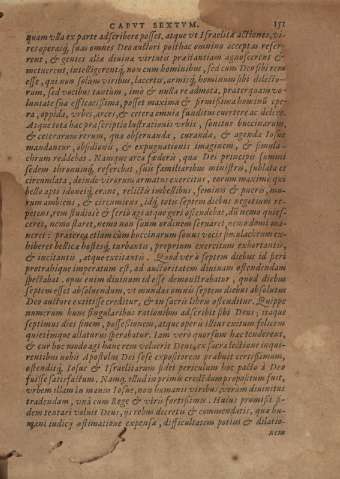 CAPVT SEXTVM. 151
quam vlla ex parte adscribere posset, atque vt Israelitæ actiones, vi-
res, operásq; suas omnes Deo auctori posthac omnino acceptas refer-
rent, & gentes aliæ diuinæ virtutis præstantiam agnoscerent &
metuerent, intelligerentq; non cum hominibus, sed cum Deo sibi rem
esse, qui non solùm viribus, lacertis, armisq; hominum sibi delecto-
rum, sed vocibus tantum, imò & nulla re admota, præterquam vo-
luntate sua efficacissima, posset maxima & firmissima hominũ ope-
ra, oppida, vrbes, arces, & cetera omnia funditus euertere ac delere.
Atque tota hæc præscriptio lustrationis vrbis, sonitus buccinarum,
& cæterarum rerum, quæ obseruanda, curanda, & agenda Iosuæ
mandantur, obsidionis, & expugnationis imaginem, & simula-
chrum reddebat. Namque arca fœderis, quæ Dei principis summi
sedem thronumq; referebat, suis familiaribus ministris, publica est
circumdata, deinde virorum armatorum exercitu, eorum maximè qui
bello apti idoneíq; erant, relictis imbellibus, feminis & pueris, mu-
rum ambiens, & circumiens, idq; totis septem diebus negotium re-
petens, rem studiosè & seriò agi atque geri ostendebat, dũ nemo quies-
ceret, nemo staret, nemo non suum ordinem seruaret, nemo domi ma-
neret: præterquam etiam cùm buccinarum sonus vocis simulachrum ex-
hiberet bellicæ hostesq; turbantis, proprium exercitum exhortantis,
& incitantis, atque excitantis. Quod verò septem diebus id geri
protrahique imperatum est, ad auctoritatem diuinam ostendendam
spectabat. opus enim diuinum id esse demonstrabatur, quod diebus
septem esset absoluendum, vt mundus omnis septem diebus absolutus
Deo auctore extitisse creditur, & in sacris libris ostenditur. Quippe
numerum hunc singularibus rationibus adscribit sibi Deus, itaque
septimus dies finem, possessionem, atque operis illius exitum felicem
quietemque allaturus sperabatur. Iam verò quorsum hæc tenderent,
& cur hoc modo agi hanc rem voluerit Deus, ex sacra lectione inqui-
rentibus nobis Apostolus Dei sese expositorem præbuit certissimum,
ostenditq; Iosuæ & Israelitarum fidei periculum hoc pacto à Deo
fuisse satisfactum. Namq; illud in primis credẽdum propositum fuit,
vrbem illam in manus Iosuæ, non humanis viribus, verùm diuinitus
tradendam, vnà cum Rege & viris fortissimis. Huius promissi fi-
dem tentari voluit Deus, iis rebus decretis & commendatis, quæ hu-
mani iudicij æstimatione expensa, difficultatem potius & dilatio-
nem